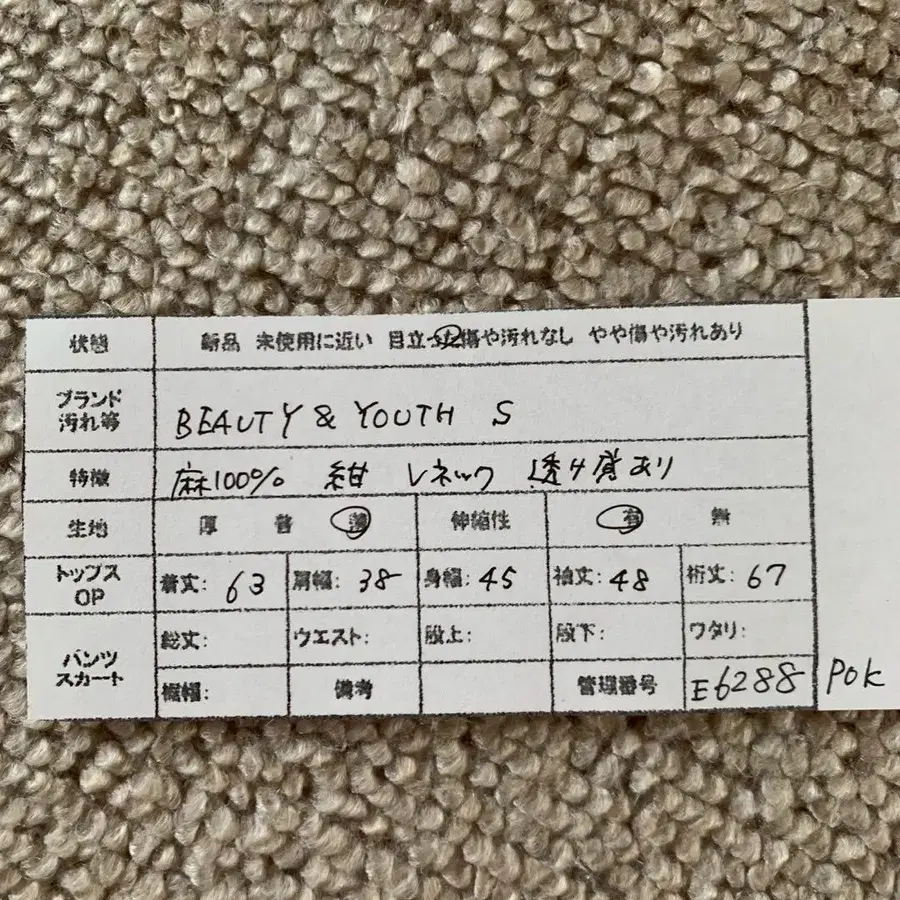 状態 新品 未使用に近い 目立った傷や汚れなし やや傷や汚れあり
ブランド
汚れ等 BEAUTY & YOUTH S
特徴 麻100% 紺 Vネック 透け感あり
生地 厚 普 薄 伸縮性 有 無
トップス
OP 着丈: 63 肩幅: 38 身幅: 45 袖丈: 48 裄丈: 67
パンツ
スカート 総丈: ウエスト: 股上: 股下: ワタリ:
裾幅: 備考 管理番号 E6288 POK